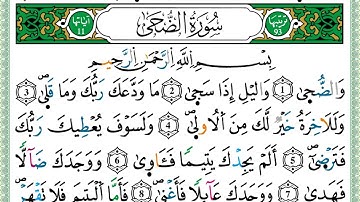 ترتيبها 93 سُورَةُ الضُّحَىٰ آياتها 11
بِسْمِ اللَّهِ الرَّحْمَٰنِ الرَّحِيمِ
وَالضُّحَىٰ ﴿1﴾ وَاللَّيْلِ إِذَا سَجَىٰ ﴿2﴾ مَا وَدَّعَكَ رَبُّكَ وَمَا قَلَىٰ ﴿3﴾
وَلَلْآخِرَةُ خَيْرٌ لَّكَ مِنَ الْأُولَىٰ ﴿4﴾ وَلَسَوْفَ يُعْطِيكَ رَبُّكَ
فَتَرْضَىٰ ﴿5﴾ أَلَمْ يَجِدْكَ يَتِيمًا فَآوَىٰ ﴿6﴾ وَوَجَدَكَ ضَالًّا
فَهَدَىٰ ﴿7﴾ وَوَجَدَكَ عَائِلًا فَأَغْنَىٰ ﴿8﴾ فَأَمَّا الْيَتِيمَ فَلَا تَقْهَرْ